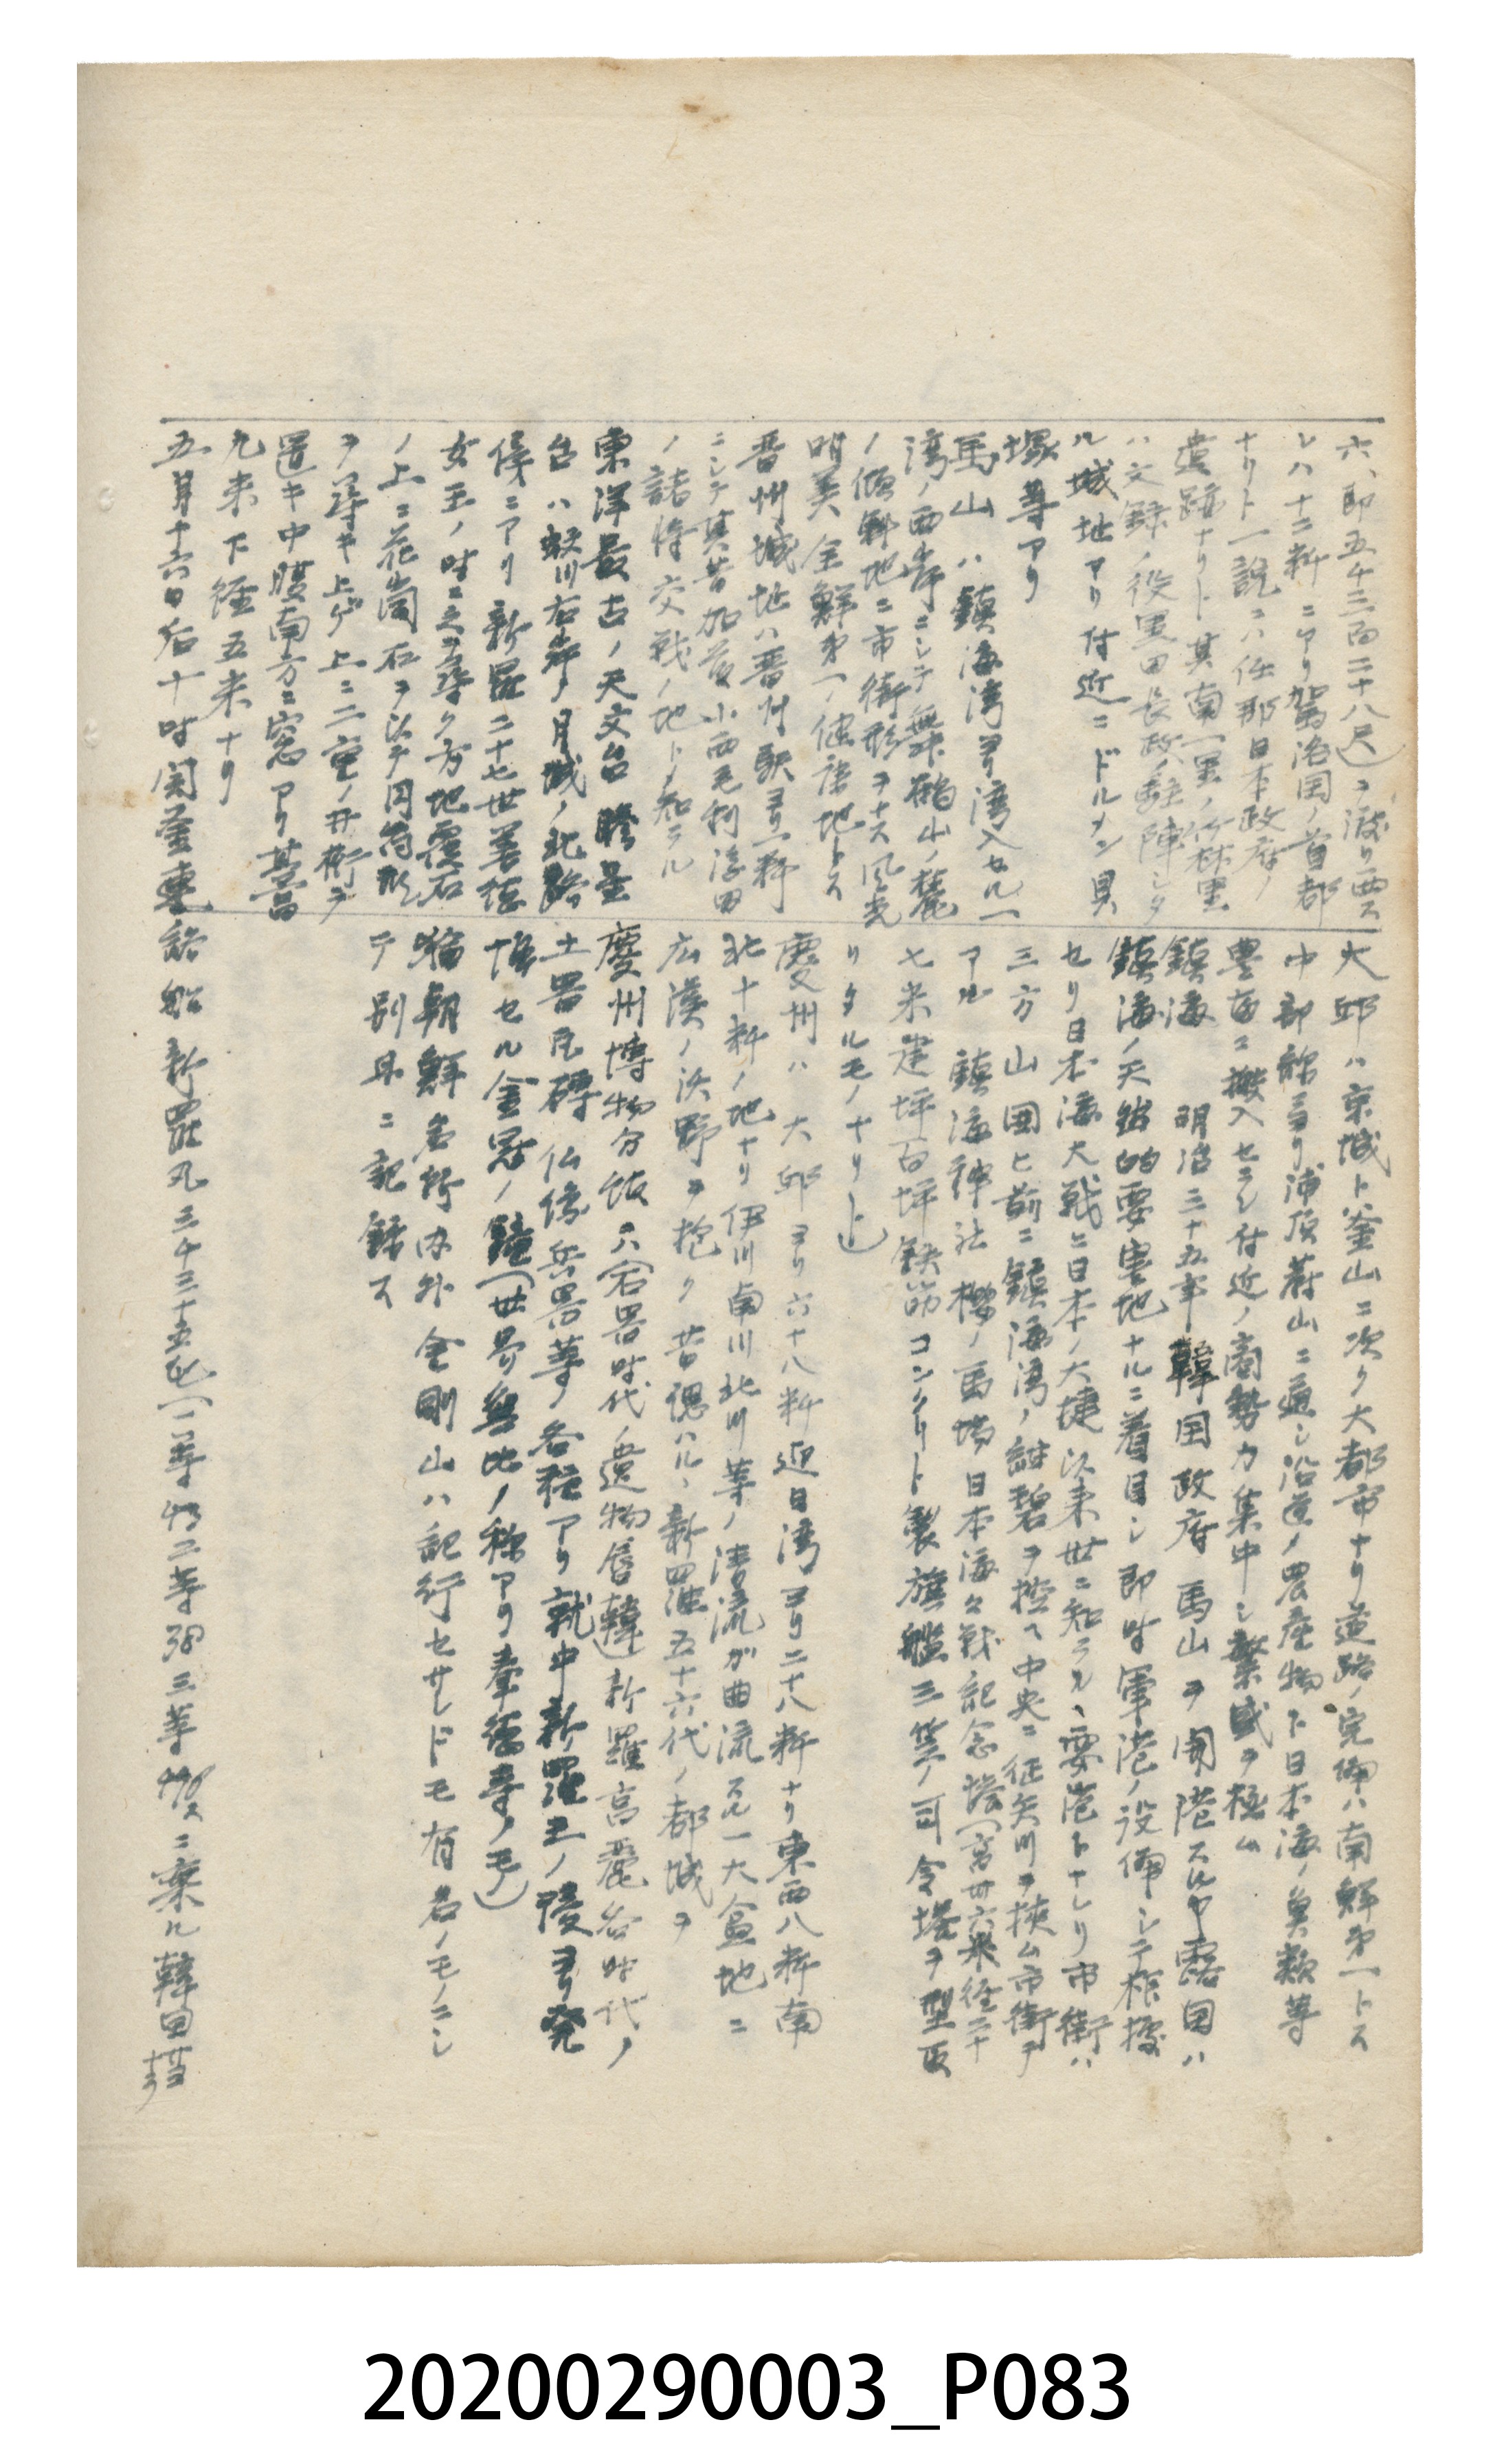 六、即五千三百二十八尺)ヲ渡リ西ス
レハ十二粁ニアリ駕洛国ノ首都
ナリト一説ニハ任那日本政府ノ
遺跡ナリト其南一里ノ竹林里
ハ文録ノ役黒田長政ノ駐陣シタ
ル城地アリ付近ニドルメン貝
塚等アリ
馬山ハ鎮海湾ヨリ湾入セル一
湾ノ西岸ニシテ無味鶴山ノ麓
ノ傾斜地ニ市街形ヲナス風光
明美全鮮第一ノ健康地トス
晋州城址ハ晋州駅ヨリ一粁
ニシテ其昔加藤小西毛利浮田
ノ諸将交戦ノ地ト〆知ラル
東洋最古ノ天文台瞻星
台ハ蚊川右岸ノ月城ノ北路
傍ニアリ新羅二十七世善徳
女王ノ時ニ之ヲ築ク方地覆石
ノ上ニ花崗石ヲ以テ円筒形
ヲ築キ上ゲ上ニ二重ノ井桁ヲ
置キ中腹南方ニ窓アリ基高
九米下径五米ナリ
大邱ハ京城ト釜山ニ次ク大都市ナリ道路ノ完備ハ南鮮第一トス
中部 浦項蔚山ニ通シ沿道ノ農産物ト日本海ノ魚類等
豊富ニ搬入セラレ付近ノ商勢力集中シ繁盛ヲ極ム
鎮海 明治三十五年韓国政府馬山ヲ開港スルヤ露国ハ
鎮海ノ天然的要害地ナルニ着目シ即時軍港ノ設備シテ根據
セリ日本海大戦ニ日本ノ大捷以来世ニ知ラル、要港トナレリ市街ハ
三方山囲ヒ前ニ鎮海湾ノ紺碧ヲ控ヘ中央ニ征矢川ヲ挾ム市街ヲ
アル 鎮海神社櫻ノ馬場日本海々戦記念塔(高卅六米径二十
七米建坪百坪鉄筋コンクリト製旗艦三笠ノ司令塔ヲ型取
リタルモノナリト)
慶州ハ大邱ヨリ六十八粁迎日湾ヨリ二十八粁ナリ東西八粁南
北十粁ノ地ナリ伊川南川北川等ノ清流ガ曲流スル一大盆地ニ
広漠ノ沃野ヲ抱ク昔謳ハル、新羅五十六代ノ都城ヲ
慶州博物分館ハ(石器時代ノ遺物辰韓)新羅高麗各時代ノ
土器瓦磚仏像兵器等ノ各種アリ就中新羅王ノ陵ヨリ発
掘セル金冠ノ鐘(世界無比ノ称アリ奉徳寺ノモノ)
猶朝鮮名所内外金剛山ハ記行セザレドモ有名ノモノニシ
テ別耳ニ記録ス
五月十六日后十時関釜連絡船新羅丸三千三十五屯(一等 二等 三等 ニ乗ル韓国
20200290003_P083